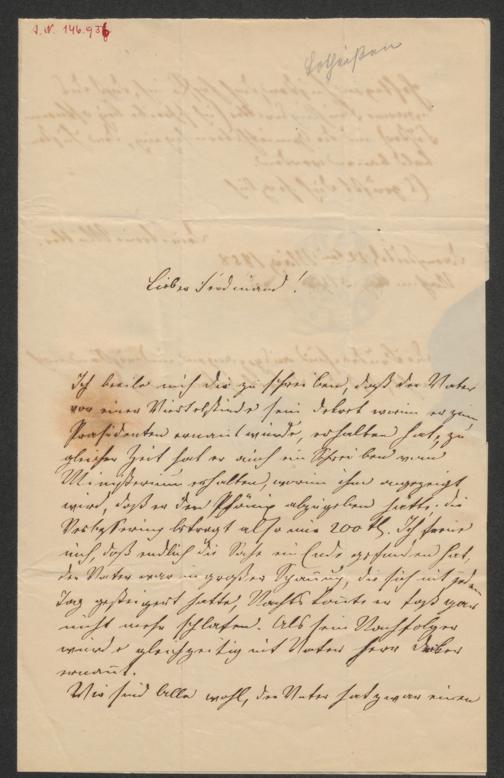 J. N. 146.936
Lotheißen
Lieber Ferdinand!
Ich beeile mich dir zu schreiben, daß der Vater
vor einer Viertelstunde sein Dekret worin er zum
Präsidenten ernannt wurde, erhalten hat, zu
gleicher Zeit hat er auch ein Schreiben vom
Ministerium erhalten, worin ihm angezeigt
wird, daß er den abzugeben hatte. die
beträgt also nur 200 fl. Ich freue
mich, daß endlich die Sache ein Ende gefunden hat,
der Vater war in großer Spannung, die sich mit jedem
Tag gesteigert hatte, Nachts konnte er fast gar
nicht mehr schlafen. Als sein Nachfolger
wurde gleichzeitig mit Vater Herr
ernannt.
Wir sind Alle wohl, der Vater hat zwar einen